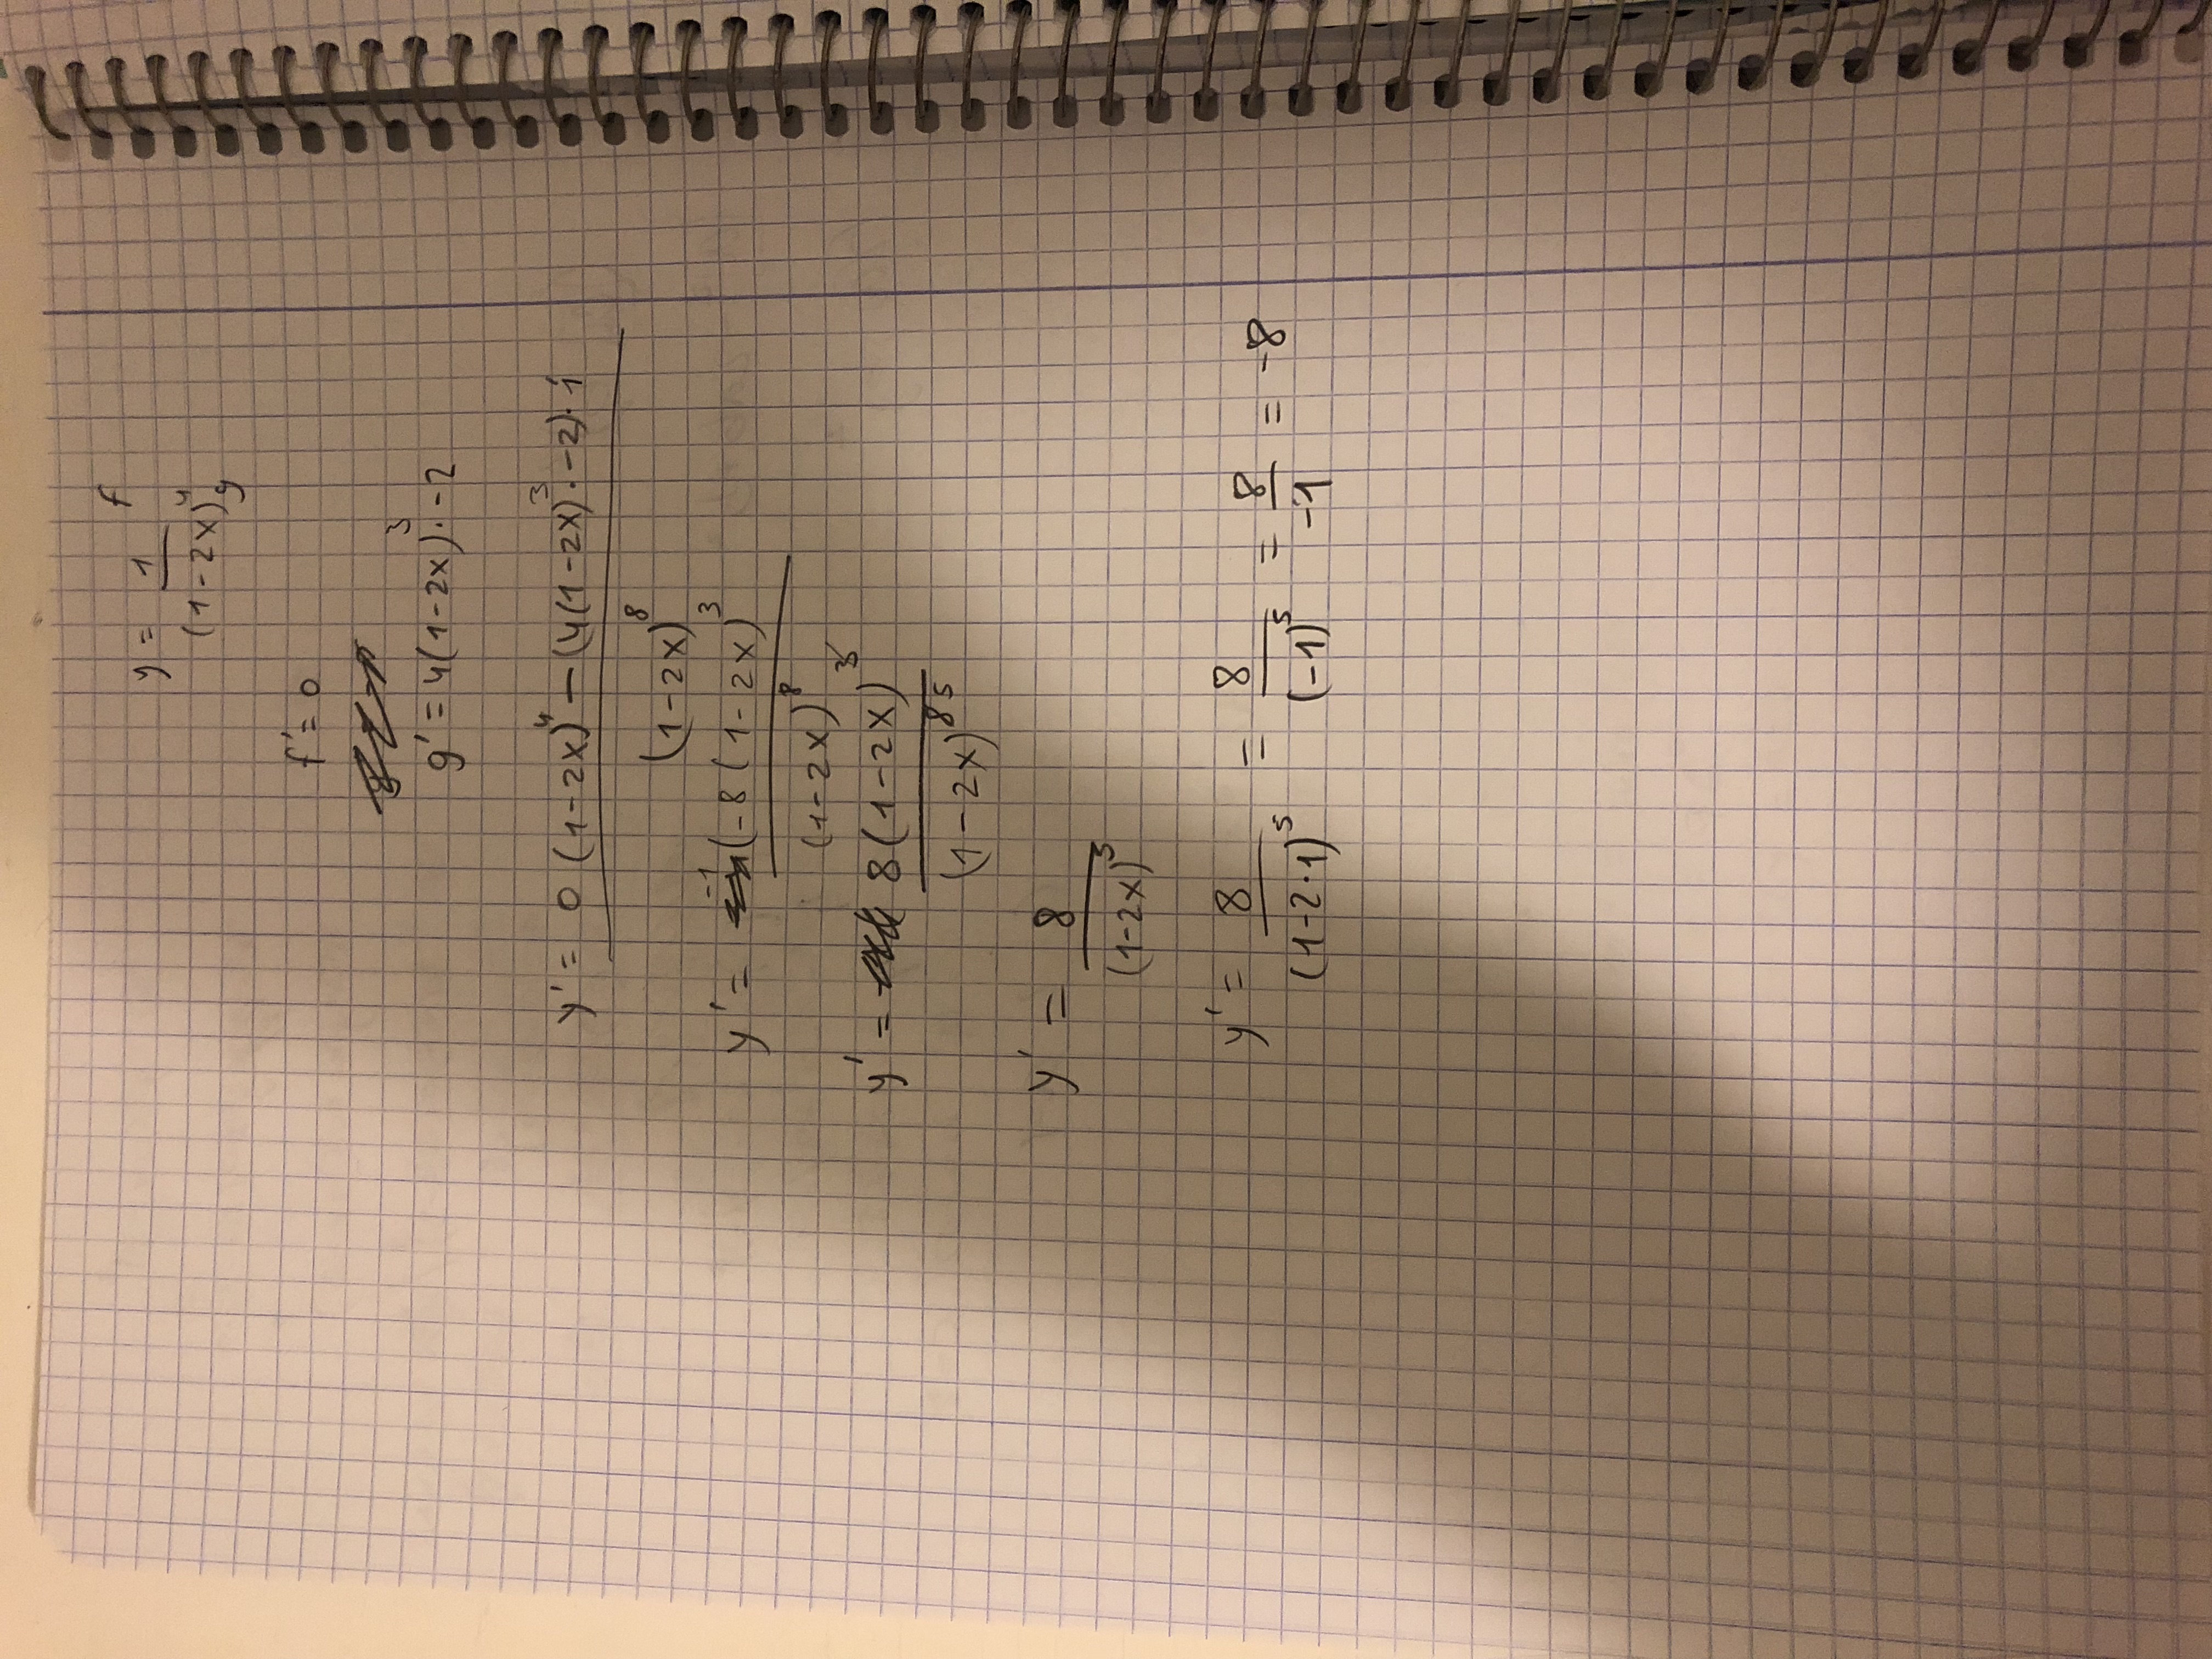 y = 1/(1-2x)^4 f g
f' = 0
g' = 4(1-2x)^3 · -2
y' = 0(1-2x)^4 - (4(1-2x)^3 · -2) · 1 / (1-2x)^8
y' = -1(-8(1-2x)^3 / (1-2x)^8
y' = 8(1-2x)^3 / (1-2x)^8 5
y' = 8/(1-2x)^5
y' = 8/(1-2·1)^5 = 8/(-1)^5 = 8/-1 = -8